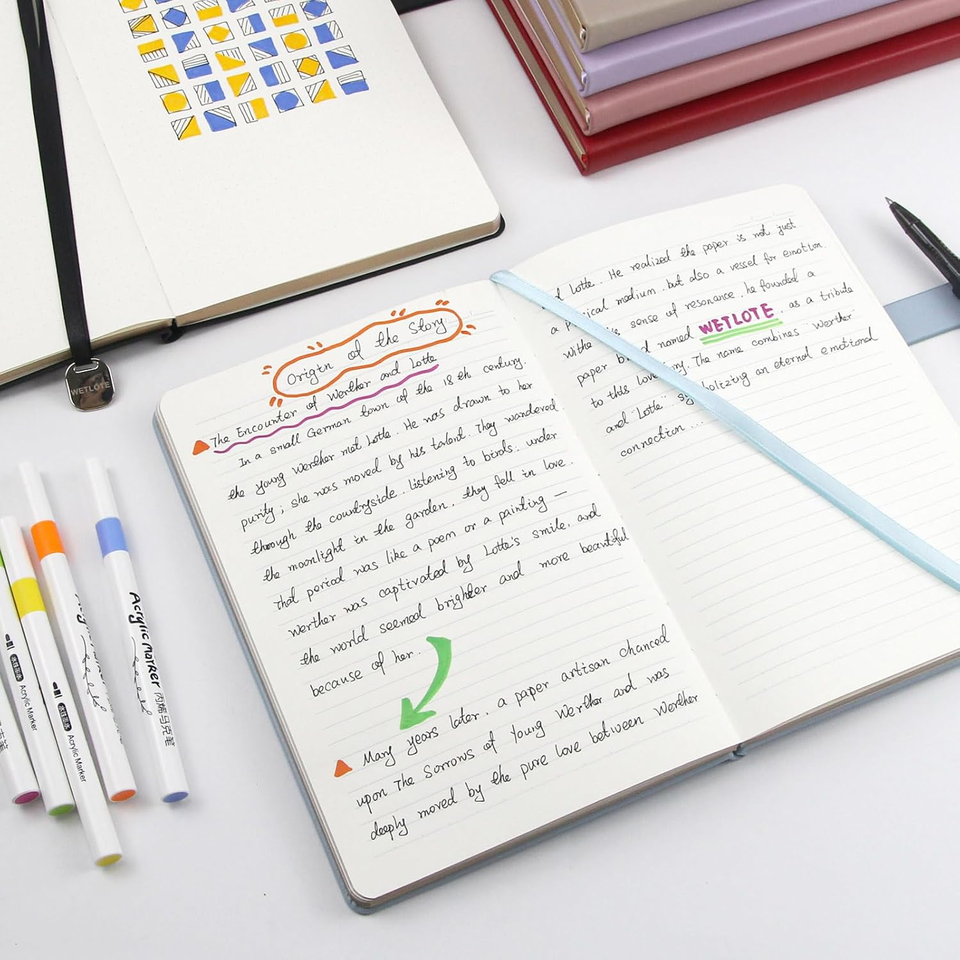 Origin of the Story
The Encounter of Werther and Lotte
In a small German town of the 18 th century.
the young Werther met Lotte. He was drawn to her
purity; she was moved by his talent. They wandered
through the countryside. listening to birds. under
the moonlight in the garden. they fell in love.
That period was like a poem or a painting —
Werther was captivated by Lotte's smile. and
the world seemed brighter and more beautiful
because of her.
Many years later. a paper artisan chanced
upon The Sorrows of Young Werther and was
deeply moved by the pure love between Werther
Lotte. He realized the paper is not just
a medium. but also a vessel for emotion.
sense of resonance. he founded a
paper named WETLOTE. as a tribute
to this The name combines Werther
and Lotte" an eternal emotional
connection ...
WETLOTE
Acrylic Marker
Acrylic Marker
Acrylic Marker 丙烯马克笔